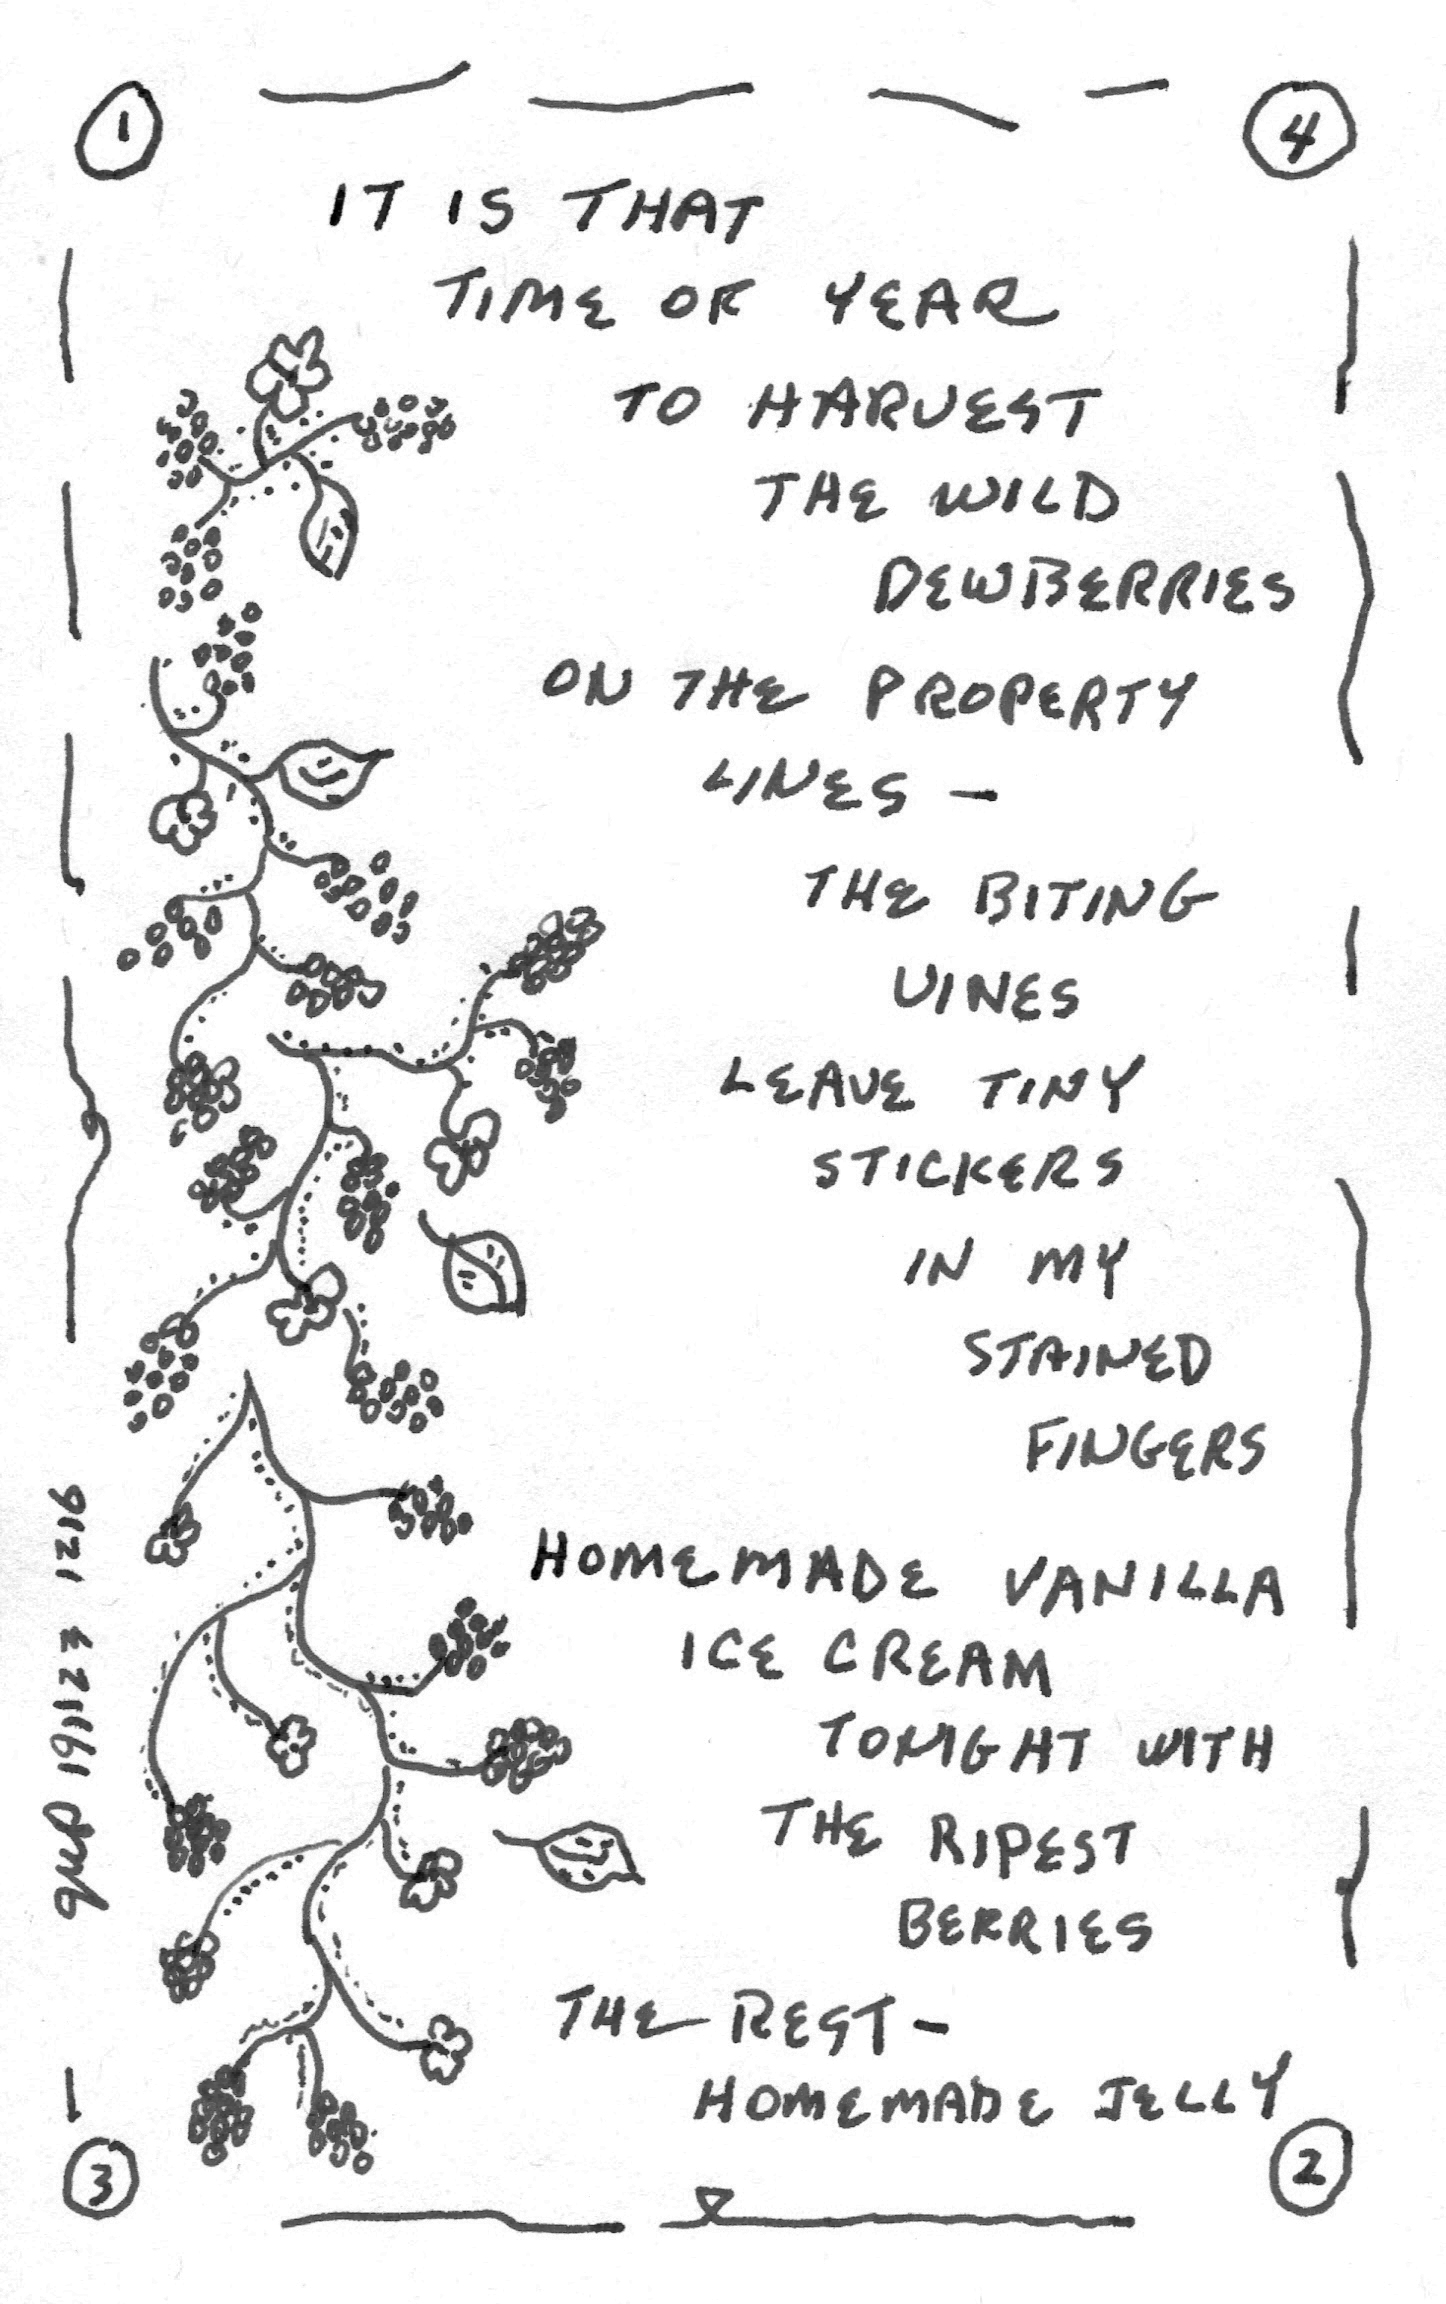 1
4
IT IS THAT
TIME OF YEAR
TO HARVEST
THE WILD
DEWBERRIES
ON THE PROPERTY
LINES -
THE BITING
VINES
LEAVE TINY
STICKERS
IN MY
STAINED
FINGERS
HOMEMADE VANILLA
ICE CREAM
TONIGHT WITH
THE RIPEST
BERRIES
THE REST -
HOMEMADE JELLY
3
2